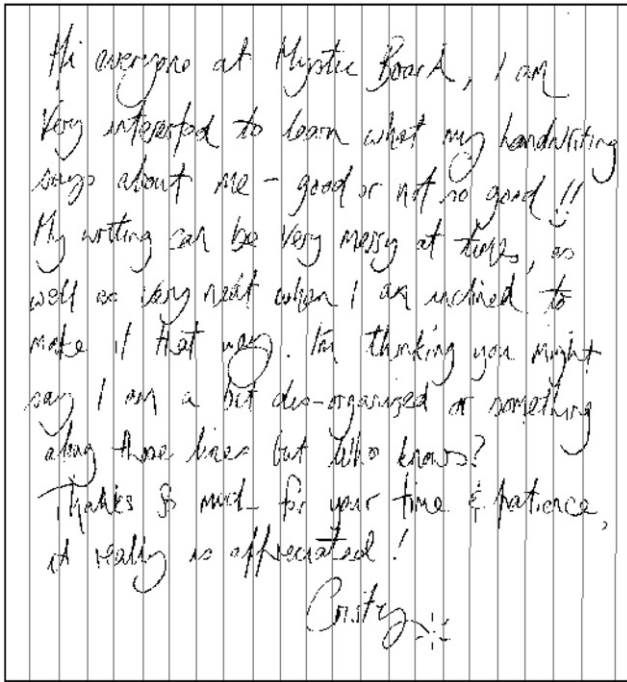 Hi everyone at Mystic Board, I am
Very interested to learn what my handwriting
says about me - good or not so good !!
My writting can be very messy at times, as
well as very neat when I am inclined to
make it that way. I'm thinking you might
say I am a bit dis-organized or something
along those lines but who knows?
Thanks so much for your time & patience,
it really is appreciated!